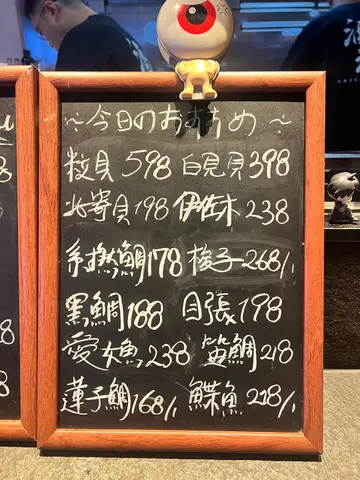 ～今日のおすすめ～
粒貝 598 白見貝 398
北寄貝 198 伊佐木 238
糸撚鯛 178 梭子 268/1
黑鯛 188 目張 198
愛女魚 238 笛鯛 218
蓮子鯛 168/1 鰈魚 218/1